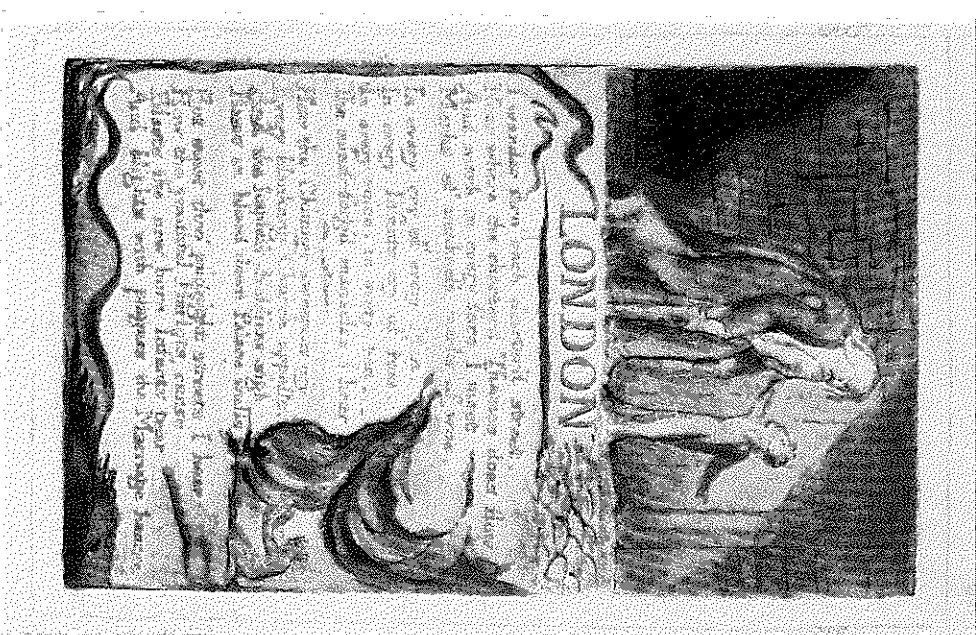 LONDON
I wander thro each charter'd street,
Near where the charter'd Thames does flow
And mark in every face I meet
Marks of weakness, marks of woe
In every cry of every Man
In every Infants cry of fear
In every voice; in every ban
The mind-forg'd manacles I hear
How the Chimney-sweepers cry
Every blackning Church appalls
And the hapless Soldiers sigh
Runs in blood down Palace walls
But most thro' midnight streets I hear
How the youthful Harlots curse
Blasts the new born Infants tear
And blights with plagues the Marriage hearse